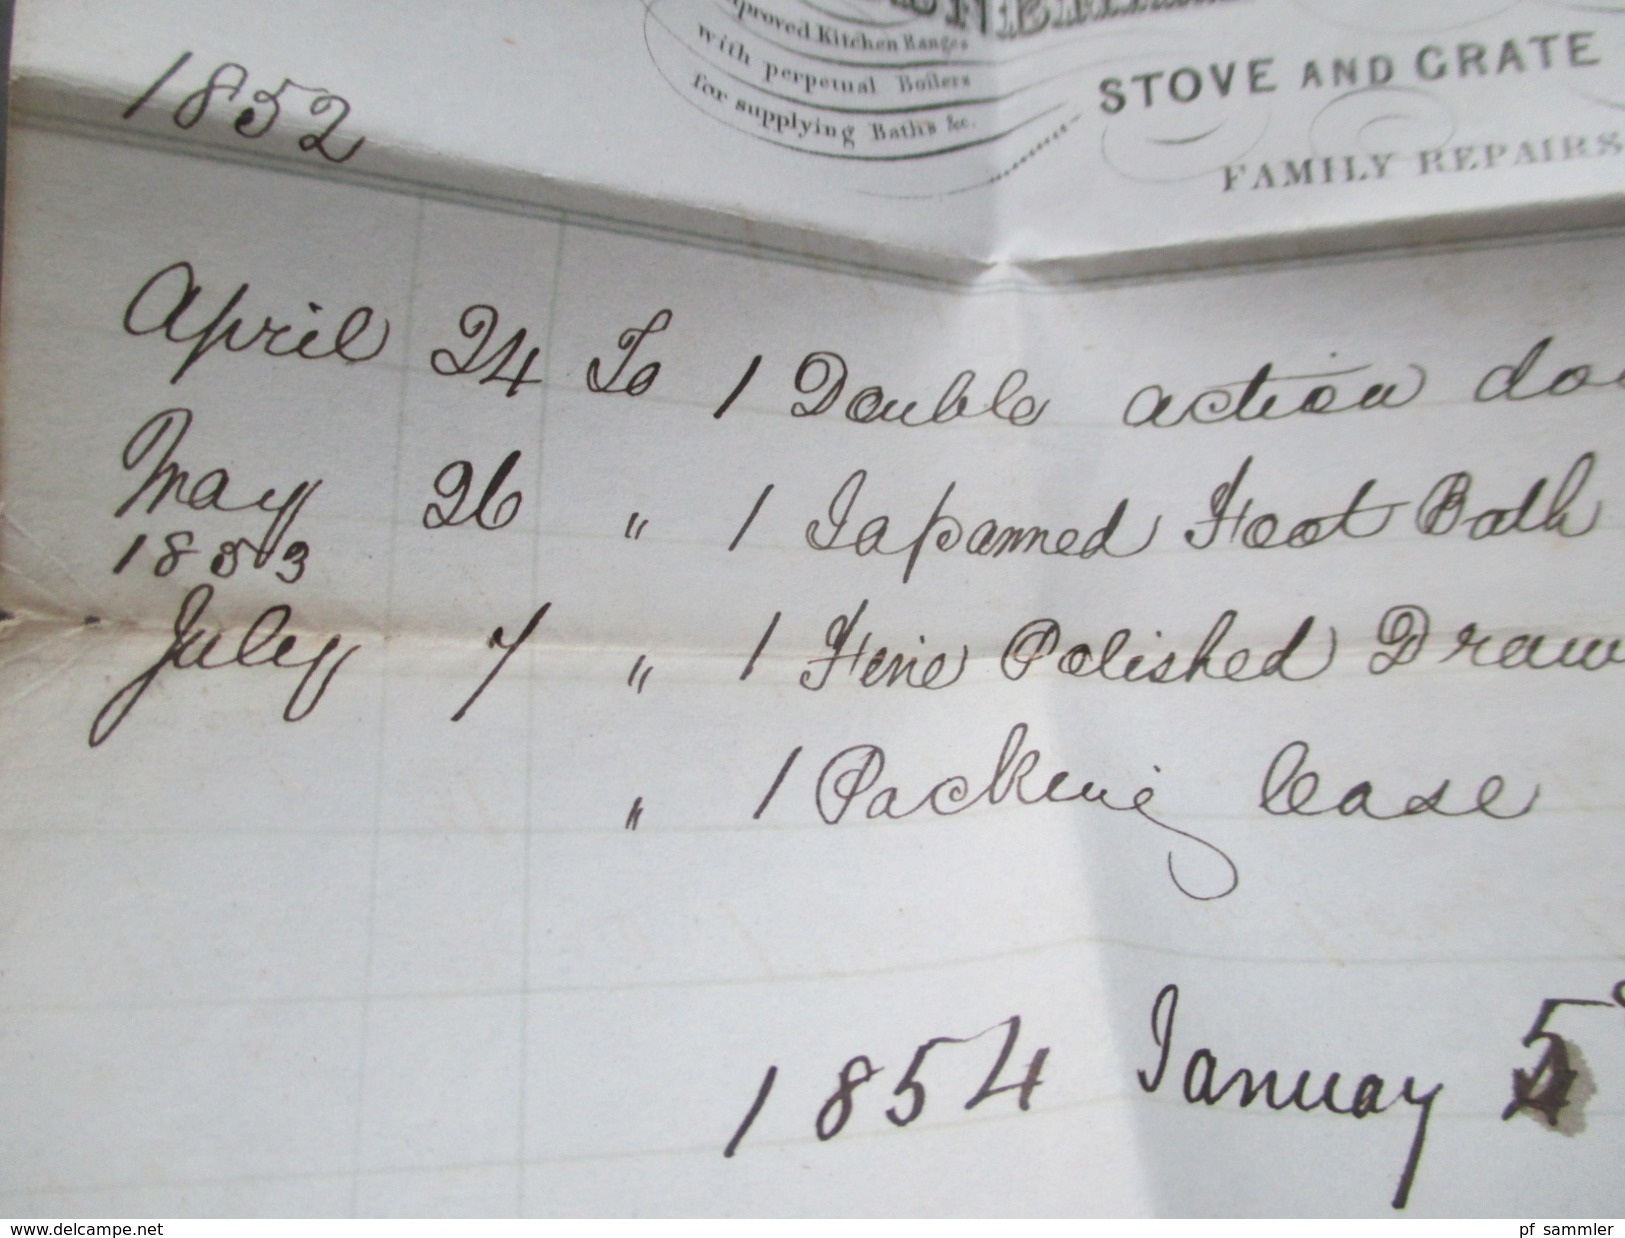 Kitchen Ranges
with perpetual Boilers
for supplying Baths &c.
STOVE AND GRATE
FAMILY REPAIRS
1852
April 24 To 1 Double action
May 26 " 1 Japanned Foot Bath
1853
July 7 " 1 Fine Polished
" 1 Packing Case
1854 January 5
www.delcampe.net
pf_sammler